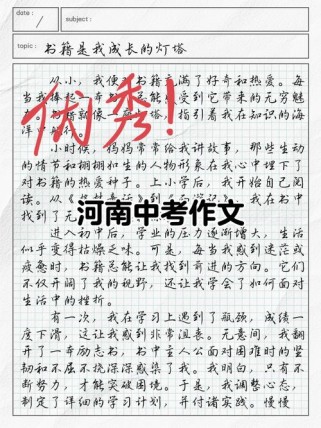 date :
subject:
topic:
书籍是我成长的灯塔
从小，我便对书籍充满了好奇和热爱。每
当我捧起一本
感受到它带来的无穷魅
指引着我在知识的海
优秀!
小时候，妈妈常常给我讲故事，那些生动
的情节和栩栩如生的人物形象在我心中埋下了
对书籍的热爱种子。上小学后，我开始自己阅
我在书中
找到了无
河南中考作文
进入初中后，学业的压力逐渐增大，生活
似乎变得枯燥乏味。可是，每当我感到迷茫或
疲惫时，书籍总能让我找到前进的方向。它们
不仅开阔了我的视野，还让我学会了如何面对
生活中的挫折。
有一次，我在学习上遇到了瓶颈，成绩一
度下滑，这让我感到非常沮丧。无意间，我翻
开了一本励志书，书中主人公面对困难时的坚
韧和不屈不挠深深感染了我。我明白，只有不
断努力，才能突破困境。于是，我调整心态，
制定了详细的学习计划，并付诸实践。慢慢